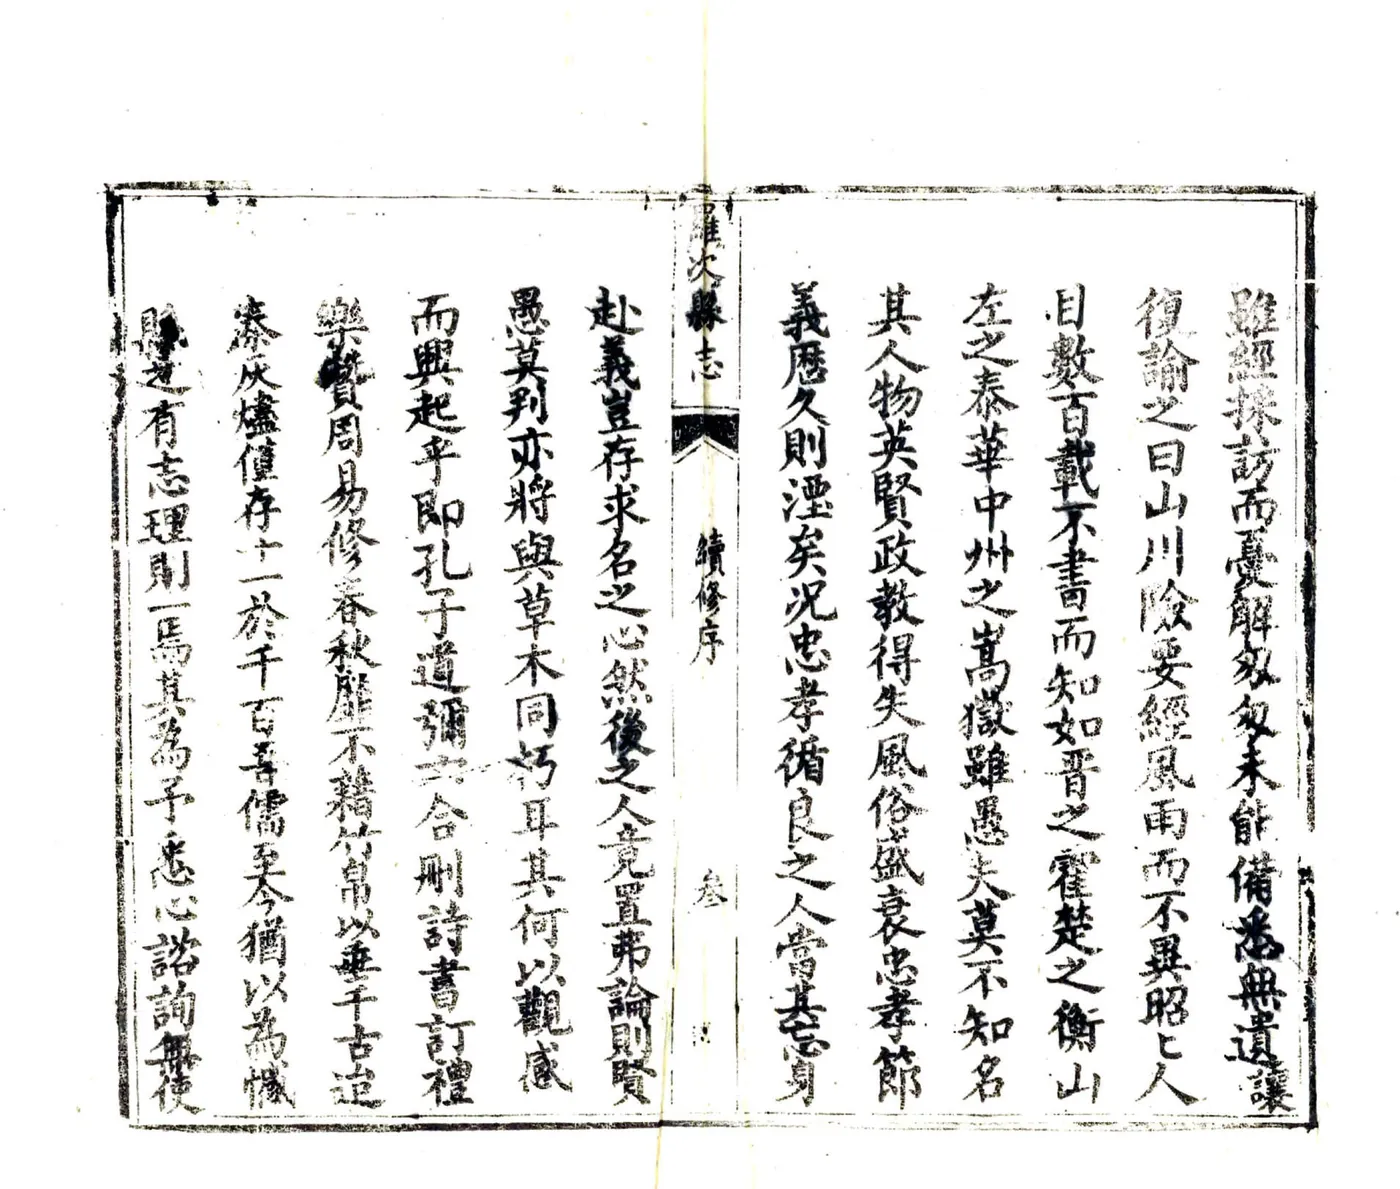 雖經採訪而憂解匆匆未能備悉無遺讓
復諭之曰山川險要經風雨而不異昭〻人
目數百載不書而知如晋之霍楚之衡山
左之泰華中州之嵩嶽雖愚夫莫不知名
其人物英賢政教得失風俗盛衰忠孝節
義曆久則湮矣况忠孝循良之人當其忘身
羅次縣志
續修序
叁
赴義豈存求名之心然後之人竟置弗論則賢
愚莫判亦將與草木同朽耳其何以觀感
而興起乎即孔子道彌六合刪詩書訂禮
樂贊周易修春秋靡不藉竹帛以垂千古迨
秦灰燼僅存十一於千百吾儒至今猶以為憾
縣之有志理則一焉其為予悉心諮詢無使